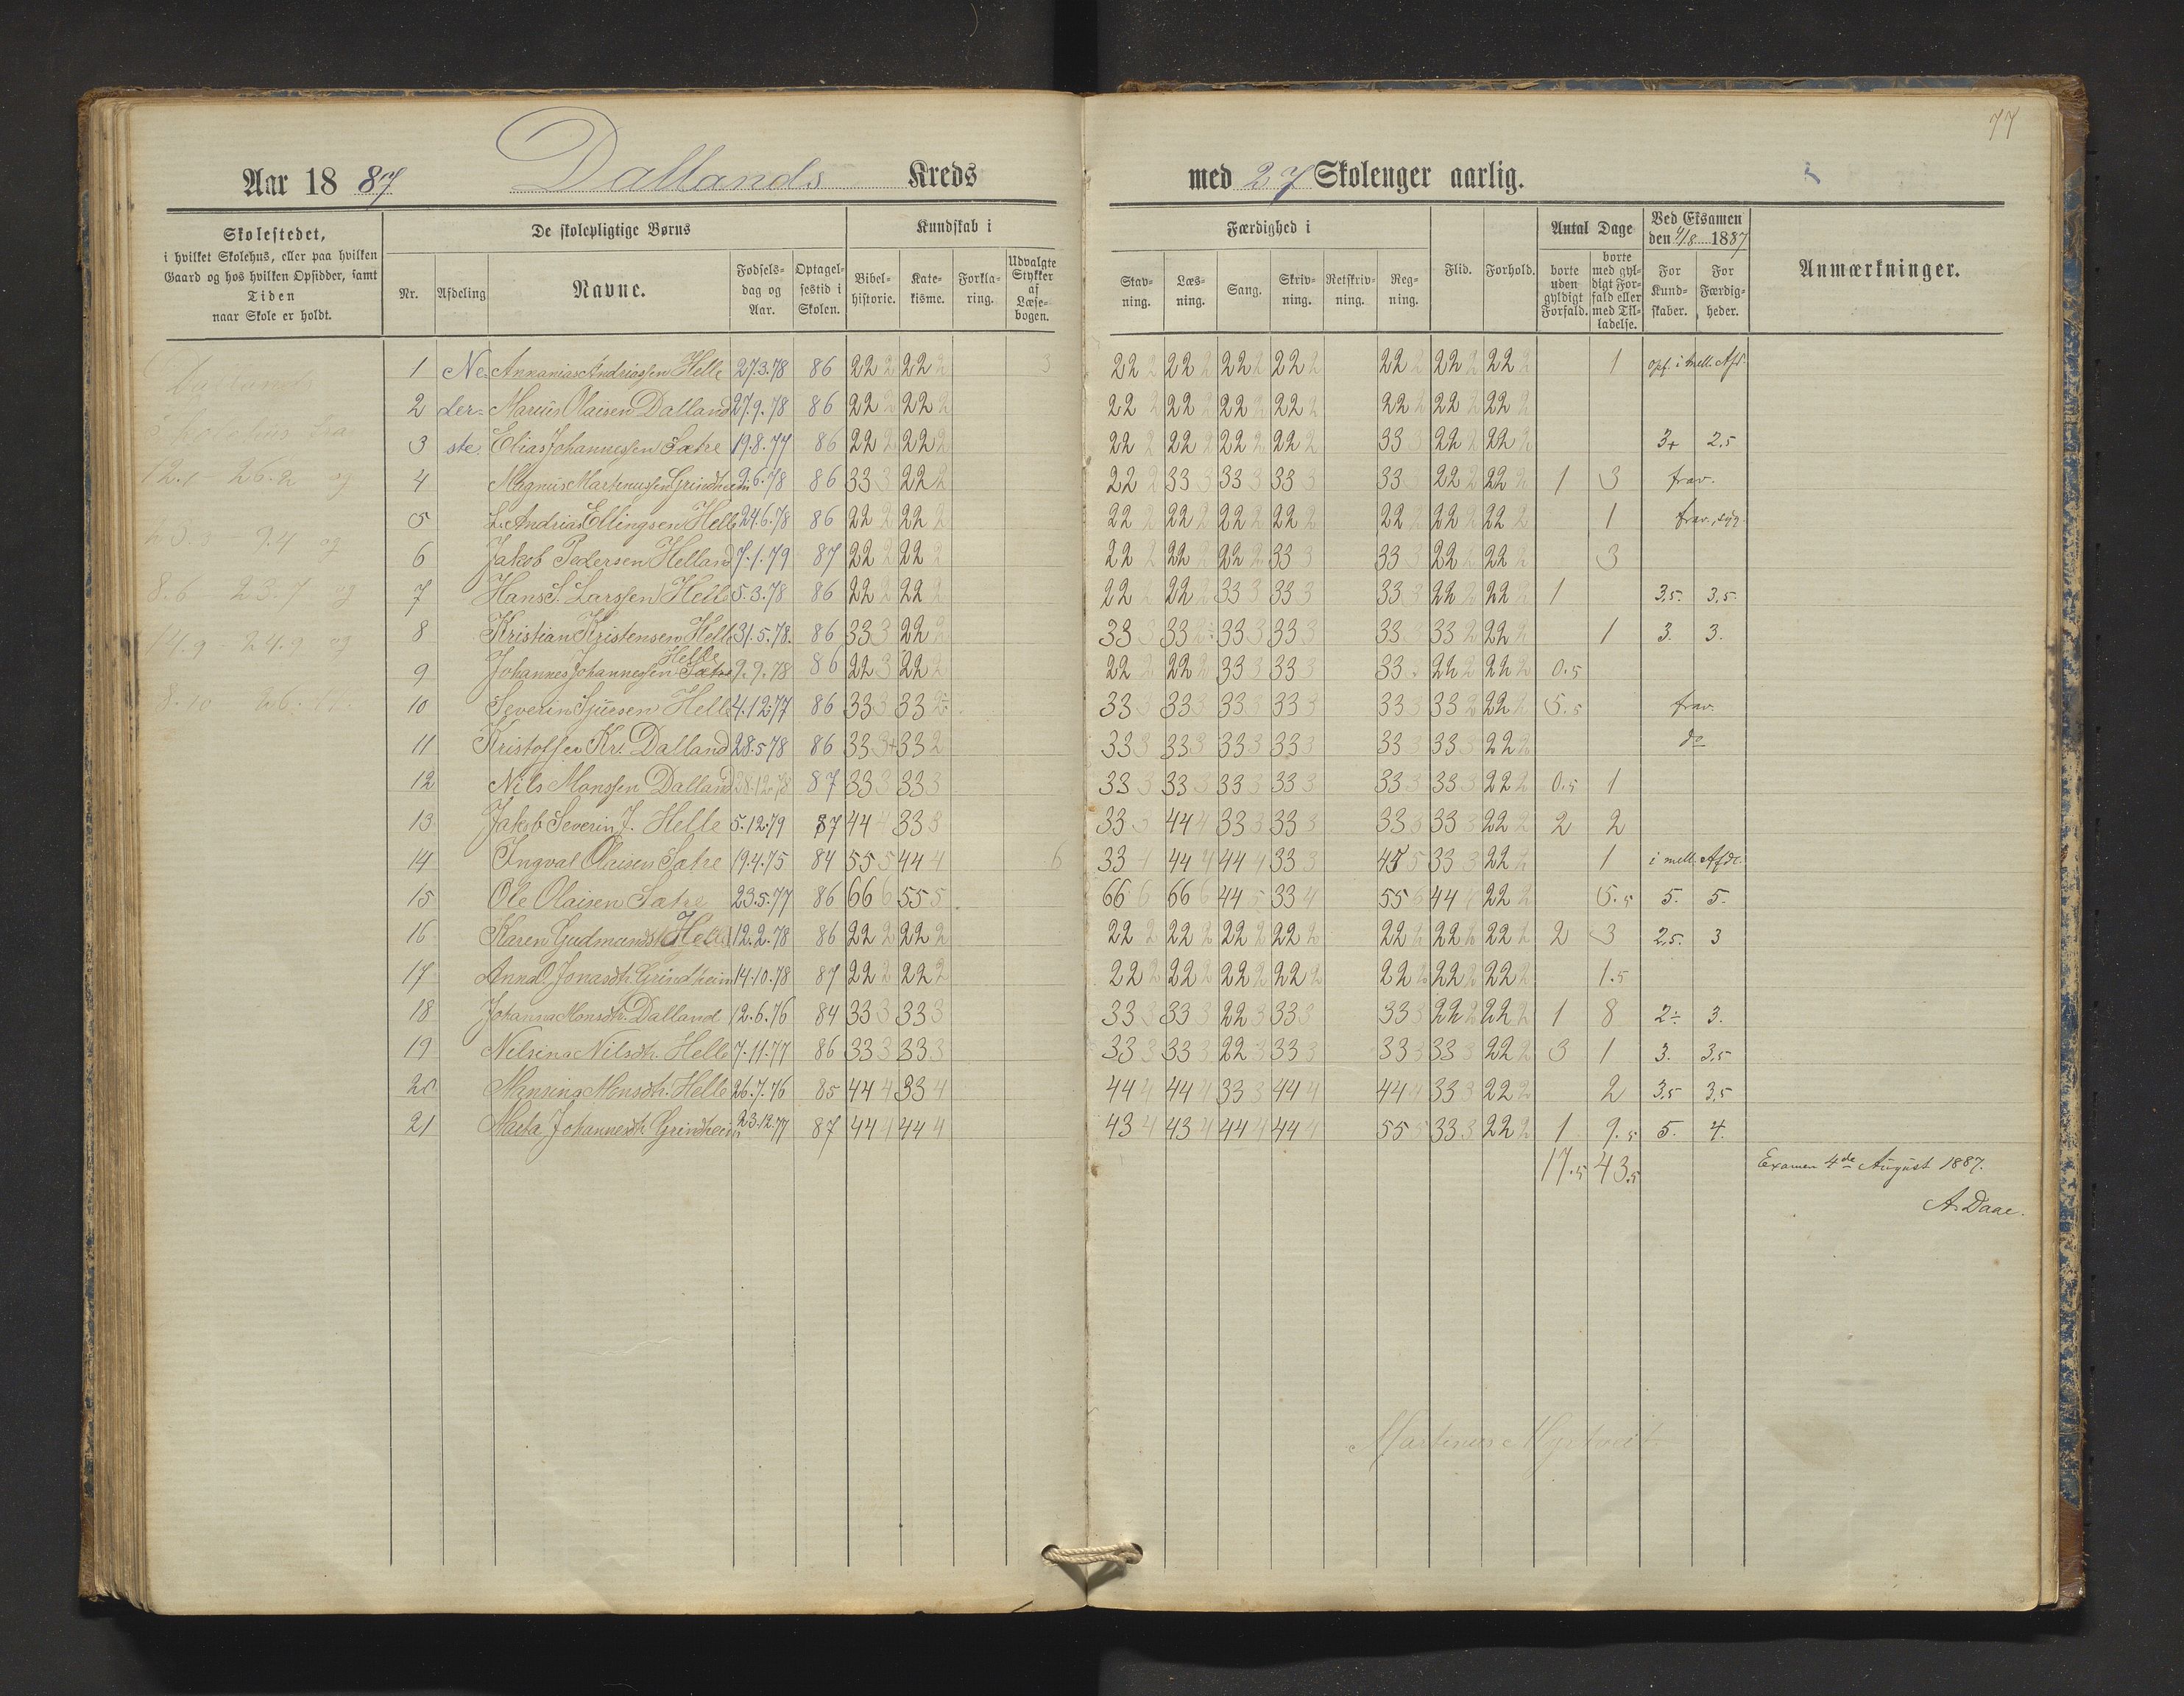 77
Aar 1887 Dallands Kreds med 27 Skolenger aarlig.
Skolestedet, i hvilket Skolehus, eller paa hvilken Gaard og hos hvilken Opsidder, samt Tiden naar Skole er holdt.
De skolepligtige Børns
Nr. Afdeling Navne. Fødselsdag og Aar. Optagelsestid i Skolen.
Kundskab i
Bibelhistorie. Katekisme. Forklaring. Udvalgte Stykker af Læsebogen.
Færdighed i
Stavning. Læsning. Sang. Skrivning. Retskrivning. Regning. Flid. Forhold.
Antal Dage
borte uden gyldigt Forfald. borte med gyldigt Forfald eller med Tilladelse.
Ved Eksamen den 4/8 1887
For Kundskaber. For Færdigheder.
Anmærkninger.
Dallands
Skolehus fra
12.1 26.2 og
9.4 og
8.6 23.7 og
14.9 - 24.9 og
8.10
1 Ne- Annanias Andriassen Helle 27.3.78 86 22 2 22 2 3 22 2 22 2 22 2 22 2 22 2 22 2 22 2 1 opf. i mell. Afd.
2 der- Marius Olaisen Dalland 27.9.78 86 22 2 22 2 22 2 22 2 22 2 22 2 22 2 22 2 22 2
3 ste. Elias Johannessen Sætre 19.8.77 86 22 2 22 2 22 2 22 2 22 2 22 2 33 3 22 2 22 2 3+ 2,5
4 Magnus Martinussen Grindheim 2.6.78 86 33 3 22 2 22 2 33 3 33 3 33 3 33 3 22 2 22 2 1 3 frav.
5 L. Andrias Ellingsen Helle 24.6.78 86 22 2 22 2 22 2 22 2 22 2 22 2 22 2 22 2 22 2 1 frav., syg.
6 Jakob Pedersen Helland 7.1.79 87 22 2 22 2 22 2 22 2 22 2 33 3 33 3 22 2 22 2 3
7 Hans S. Larssen Helle 5.3.78 86 22 2 22 2 22 2 22 2 33 3 33 3 33 3 22 2 22 2 1 3,5. 3,5.
8 Kristian Kristensen Helle 31.5.78. 86 33 3 22 2 33 3 33 2÷ 33 3 33 3 33 3 33 2 22 2 1 3. 3.
9 Johannes Johannessen Sætre Helle 2.9.78 86 22 3 22 2 22 2 22 2 33 3 33 3 33 22 2 22 2 0.5
10 Severin Sjursen Helle 4.12.77 86 33 3 33 2÷ 33 3 33 3 33 3 33 3 33 3 33 2 22 2 5.5 frav.
11 Kristoffer Kr. Dalland 28.5.78 86 33 3+ 33 2 33 3 33 3 33 3 33 3 33 3 33 3 22 2 do
12 Nils Monssen Dalland 28.12.78 87 33 3 33 3 33 3 33 3 33 3 33 3 33 3 33 3 22 2 0.5 1
13 Jakob Severin J. Helle 5.12.79 87 44 4 33 3 33 3 44 4 33 3 33 3 33 3 33 3 22 2 2 2
14 Ingval Olaisen Sætre 19.4.75 84 55 5 44 4 6 33 4 44 4 44 4 33 3 45 5 33 3 22 2 1 i mell. Afde.
15 Ole Olaisen Sætre 23.5.77 86 66 6 55 5 66 6 66 6 44 5 33 4 55 6 44 4 22 2 5.5 5. 5.
16 Karen Gudmundsd. Helle 12.2.78 86 22 2 22 2 22 2 22 2 22 2 22 2 22 2 22 2 22 2 2 3 2,5. 3
17 Anna O. Jonasdtr. Grindheim 14.10.78 87 22 2 22 2 22 2 22 2 22 2 22 2 22 2 22 2 22 2 1.5
18 Johanna Monsdtr. Dalland 12.6.76 84 33 3 33 3 33 3 33 3 22 3 33 3 33 3 22 2 22 2 1 8 2÷ 3.
19 Nelsina Nilsdtr. Helle 7.11.77 86 33 3 33 3 33 3 33 3 22 3 33 3 33 3 33 3 22 2 3 1 3. 3,5
20 Mansina Monsdtr. Helle 26.7.76 85 44 4 33 4 44 4 44 4 33 3 44 4 44 4 33 3 22 2 2 3,5 3,5
21 Marta Johannesdtr. Grindheim 23.12.77 87 44 4 44 4 43 4 43 4 44 4 44 4 55 5 33 3 22 2 1 9.5 5. 4.
17.5 43.5 Examen 4de August 1887.
A. Daae.
Martinus Myrtveit